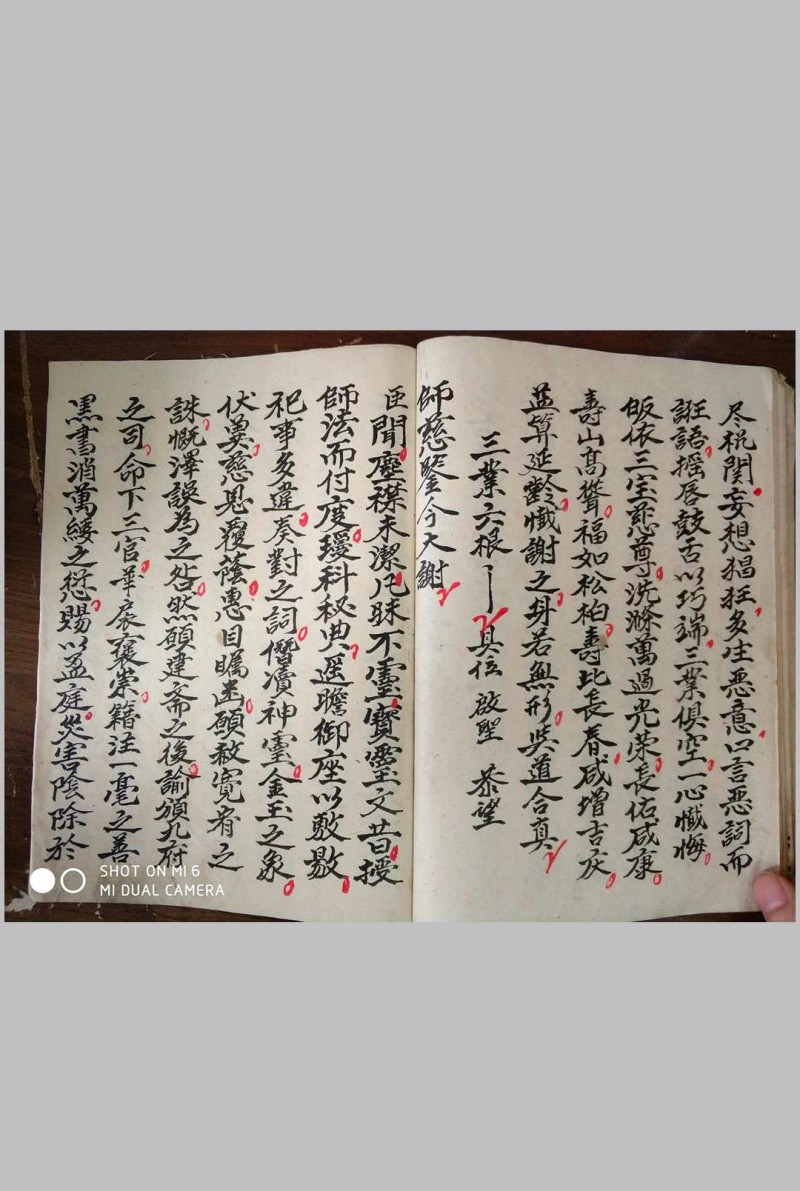 尽祝関妄想猖狂多生恶意口言恶詞而
誑語摇唇鼓舌以巧端三業俱空一心懺悔
皈依三宝慈尊洗滌萬過光荣長佑咸康
壽山髙聳福如松柏壽比長春咸增吉庆
益算延齡懺謝之身若無形与道合真
三業六根 具位 啟聖 恭望
師慈鑒今大謝
臣聞塵襟未潔凡昧不靈寶靈文昔授
師法而付度瓊科秘典遥瞻御座以敷歇
祀事多違奏對之詞僭瀆神靈金玉之象
伏兾慈恩覆蔭惠目矚盅願赦寛宥之
誅慨澤誤為之咎然願建斎之後諭頒九府
之司命下三官華衮褒崇籍注一毫之善
黑書消萬緩之愆賜以盈庭災害陰除於
SHOT ON MI 6
MI DUAL CAMERA